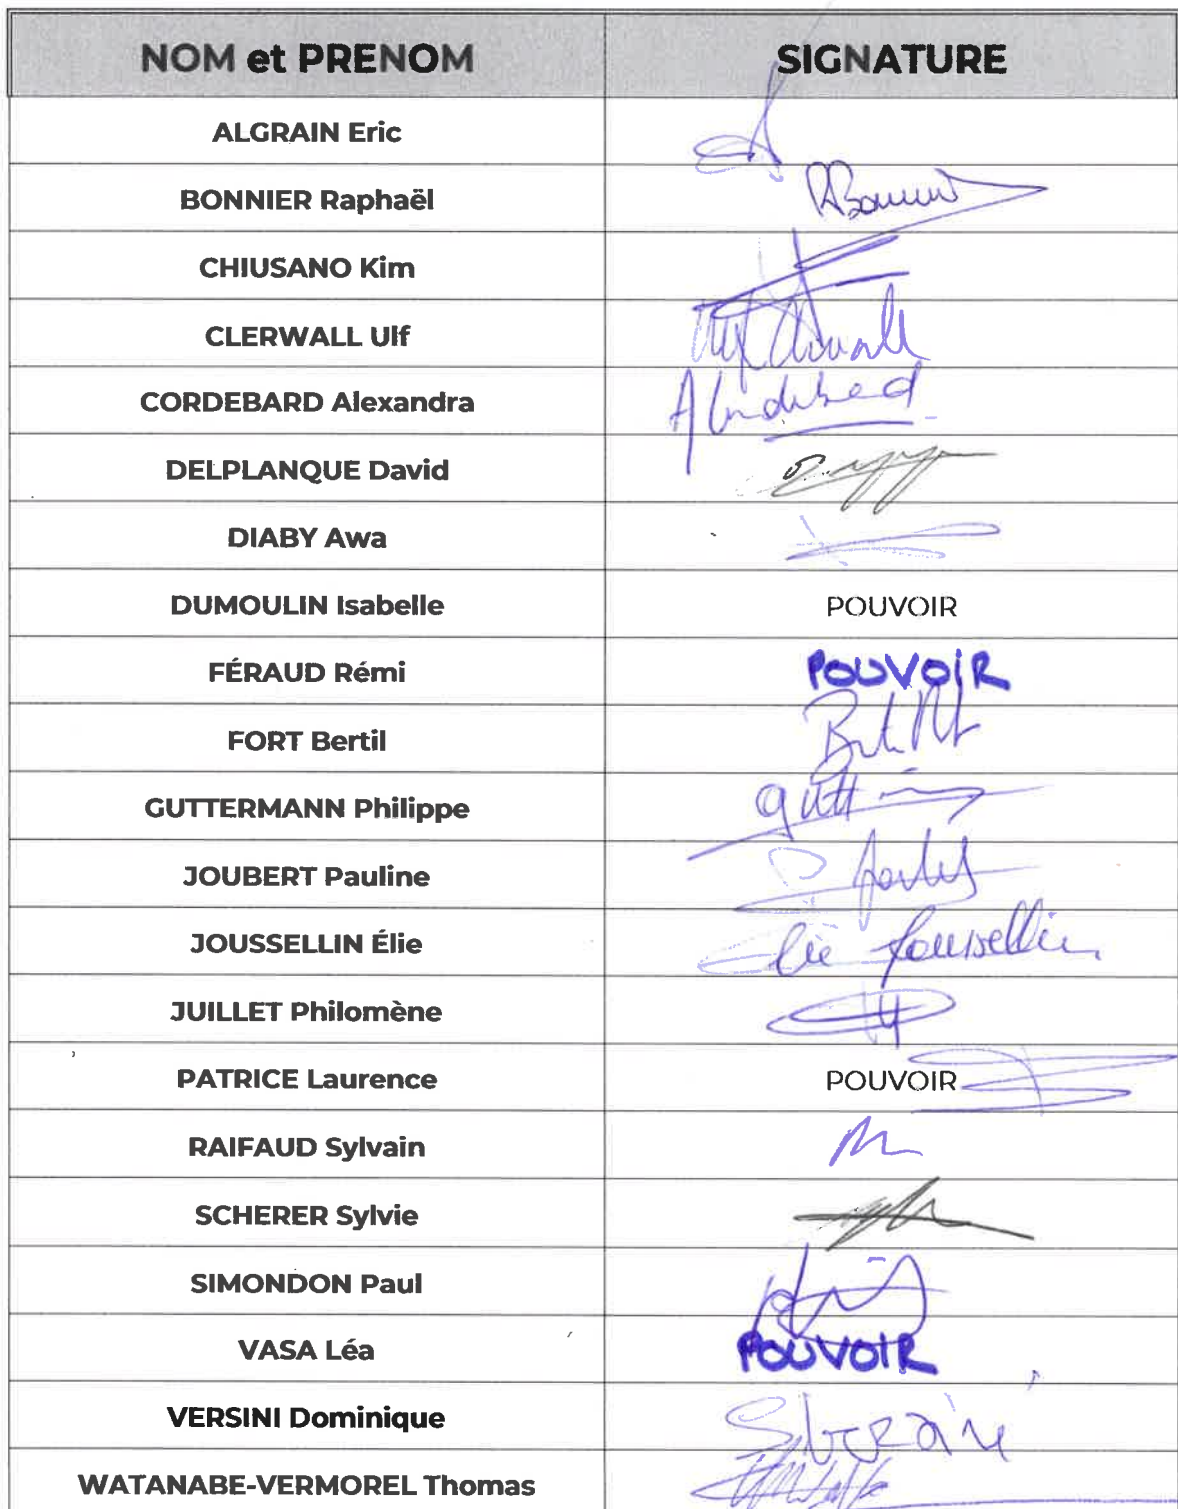 NOM et PRENOM SIGNATURE
ALGRAIN Eric
BONNIER Raphaël RBonnier
CHIUSANO Kim
CLERWALL Ulf Ulf Clerwall
CORDEBARD Alexandra A Cordebard
DELPLANQUE David
DIABY Awa
DUMOULIN Isabelle POUVOIR
FÉRAUD Rémi POUVOIR
FORT Bertil
GUTTERMANN Philippe
JOUBERT Pauline
JOUSSELLIN Élie Élie Joussellin
JUILLET Philomène
PATRICE Laurence POUVOIR
RAIFAUD Sylvain
SCHERER Sylvie
SIMONDON Paul
VASA Léa POUVOIR
VERSINI Dominique
WATANABE-VERMOREL Thomas